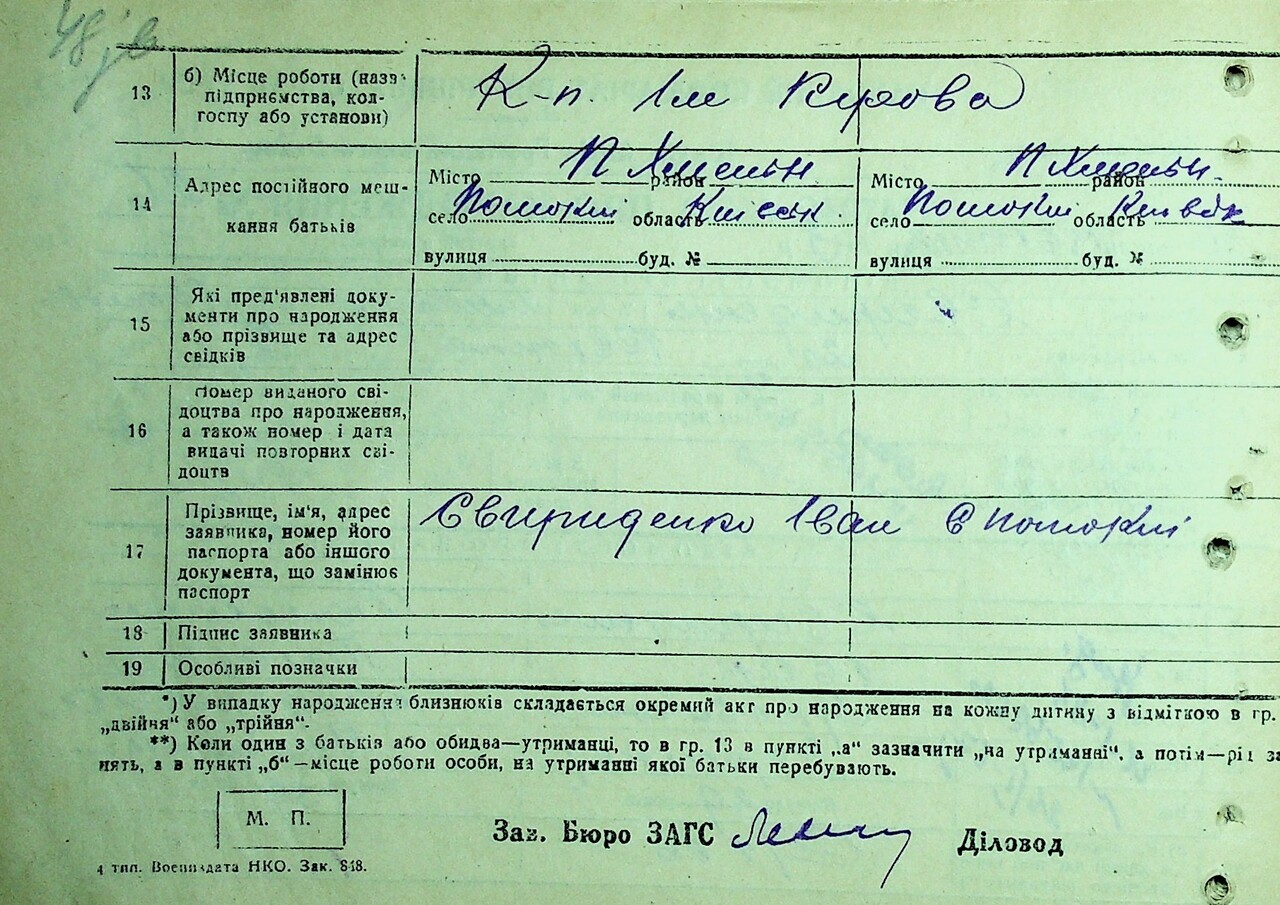 13
б) Місце роботи (назв
підприємства, кол-
госпу або установи)
К-п. Ім Кірова
14
Адрес постійного меш-
кання батьків
Місто П Хмельн район
село Потокиі область Київськ
вулиця буд. №
Місто П Хмельн. район
село Потокиі область Київськ
вулиця буд. №
15
Які пред'явлені доку-
менти про народження
або прізвище та адрес
свідків
16
Номер виданого сві-
доцтва про народження,
а також номер і дата
видачі повторних сві-
доцтв
17
Прізвище, ім'я, адрес
заявника, номер його
паспорта або іншого
документа, що замінює
паспорт
Свириденко Іван С Потокиі
18 Підпис заявника
19 Особливі позначки
*) У випадку народження близнюків складається окремий акт про народження на кожну дитину з відміткою в гр.
„двійня“ або „трійня“.
**) Коли один з батьків або обидва—утриманці, то в гр. 13 в пункті „а“ зазначити „на утриманні“, а потім—рід за
нять, а в пункті „б“—місце роботи особи, на утриманні якої батьки перебувають.
М. П.
Зав. Бюро ЗАГС
Діловод
4 тип. Воениздата НКО. Зак. 848.